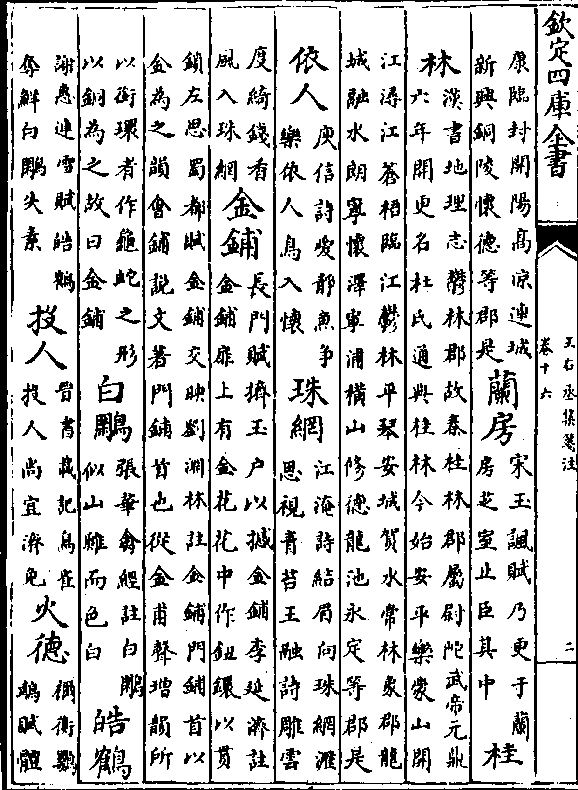 欽定四庫全書
王右丞集箋注
卷十六
二
康臨封開陽髙凉連城
新興銅陵懷德等郡是
蘭房
宋玉諷賦乃更于蘭
房芝室止臣其中
桂
林
漢書地理志鬱林郡故秦桂林郡屬尉陀武帝元鼎
六年開更名杜氏通典桂林今始安平樂蒙山開
江潯江蒼梧臨江鬱林平琴安城賀水常林象郡龍
城融水朗寧懷澤寧浦横山修德龍池永定等郡是
依人
庾信詩愛靜魚争
樂依人鳥入懷
珠網
江淹詩結眉向珠網瀝
思視青苔王融詩雕雲
度綺錢香
風入珠網
金鋪
長門賦擠玉户以撼金鋪李延濟註
金鋪扉上有金花花中作鈕鐶以貫
鎖左思蜀都賦金鋪交映劉淵林註金鋪門鋪首以
金為之韻會鋪說文著門鋪首也從金甫聲增韻所
以銜環者作龜蛇之形
以銅為之故曰金鋪
白鷴
張華禽經註白鷴
似山雞而色白
皓鶴
謝惠連雪賦皓鶴
奪鮮白鷴失素
投人
晉書載記鳥雀
投人尚宜濟免
火德
禰衡鸚
鵡賦體